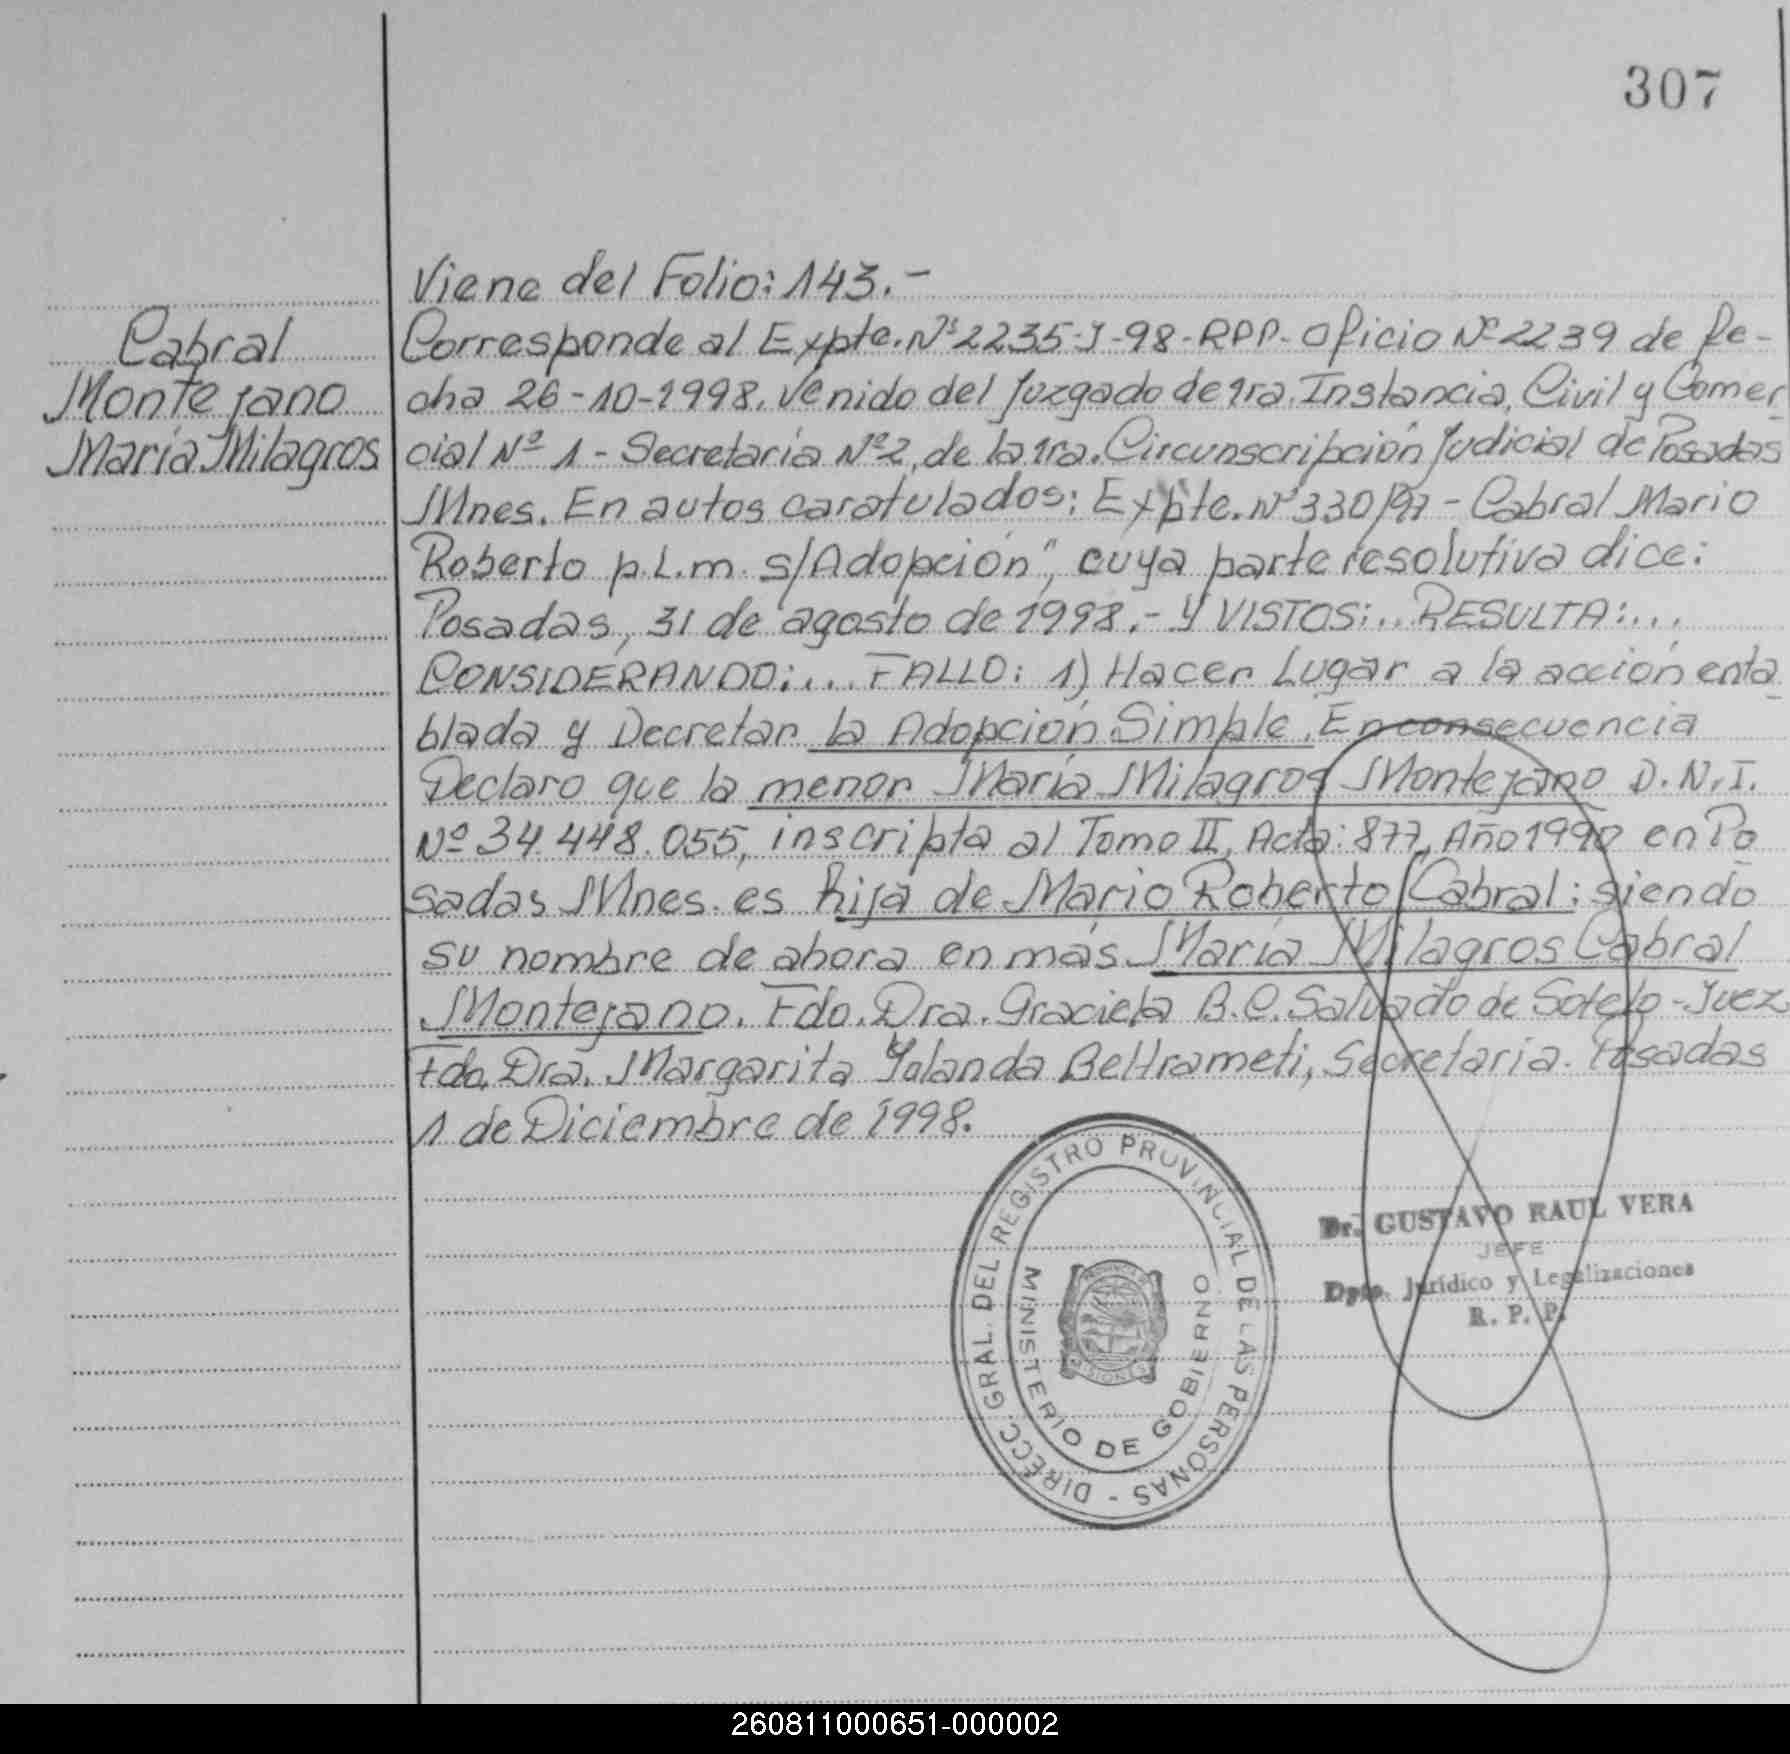 307
Viene del Folio: 143.-
Cabral
Montejano
María Milagros
Corresponde al Expte. Nº 2235-J-98-RPP- Oficio Nº 2239 de fe-
cha 26-10-1998, venido del Juzgado de 1ra. Instancia, Civil y Comer
cial Nº 1 - Secretaría Nº 2, de la 1ra. Circunscripción Judicial de Posadas
Mnes. En autos caratulados: Expte. Nº 330/97 - Cabral Mario
Roberto p.L.m. s/Adopción", cuya parte resolutiva dice:
Posadas, 31 de agosto de 1998.- Y VISTOS:... RESULTA:...
CONSIDERANDO:... FALLO: 1) Hacer Lugar a la acción enta
blada y Decretar la Adopción Simple. En consecuencia
Declaro que la menor María Milagros Montejano D.N.I.
Nº 34.448.055, inscripta al Tomo II, Acta: 877, Año 1990 en Po
sadas Mnes. es hija de Mario Roberto Cabral; siendo
su nombre de ahora en más María Milagros Cabral
Montejano. Fdo. Dra. Graciela B.C. Salvado de Sotelo - Juez
Fdo. Dra. Margarita Yolanda Beltrameti, Secretaria. Posadas
1 de Diciembre de 1998.
DIRECC. GRAL. DEL REGISTRO PROVINCIAL DE LAS PERSONAS -
MINISTERIO DE GOBIERNO
Dr. GUSTAVO RAUL VERA
JEFE
Dpto. Jurídico y Legalizaciones
R. P. P.
260811000651-000002